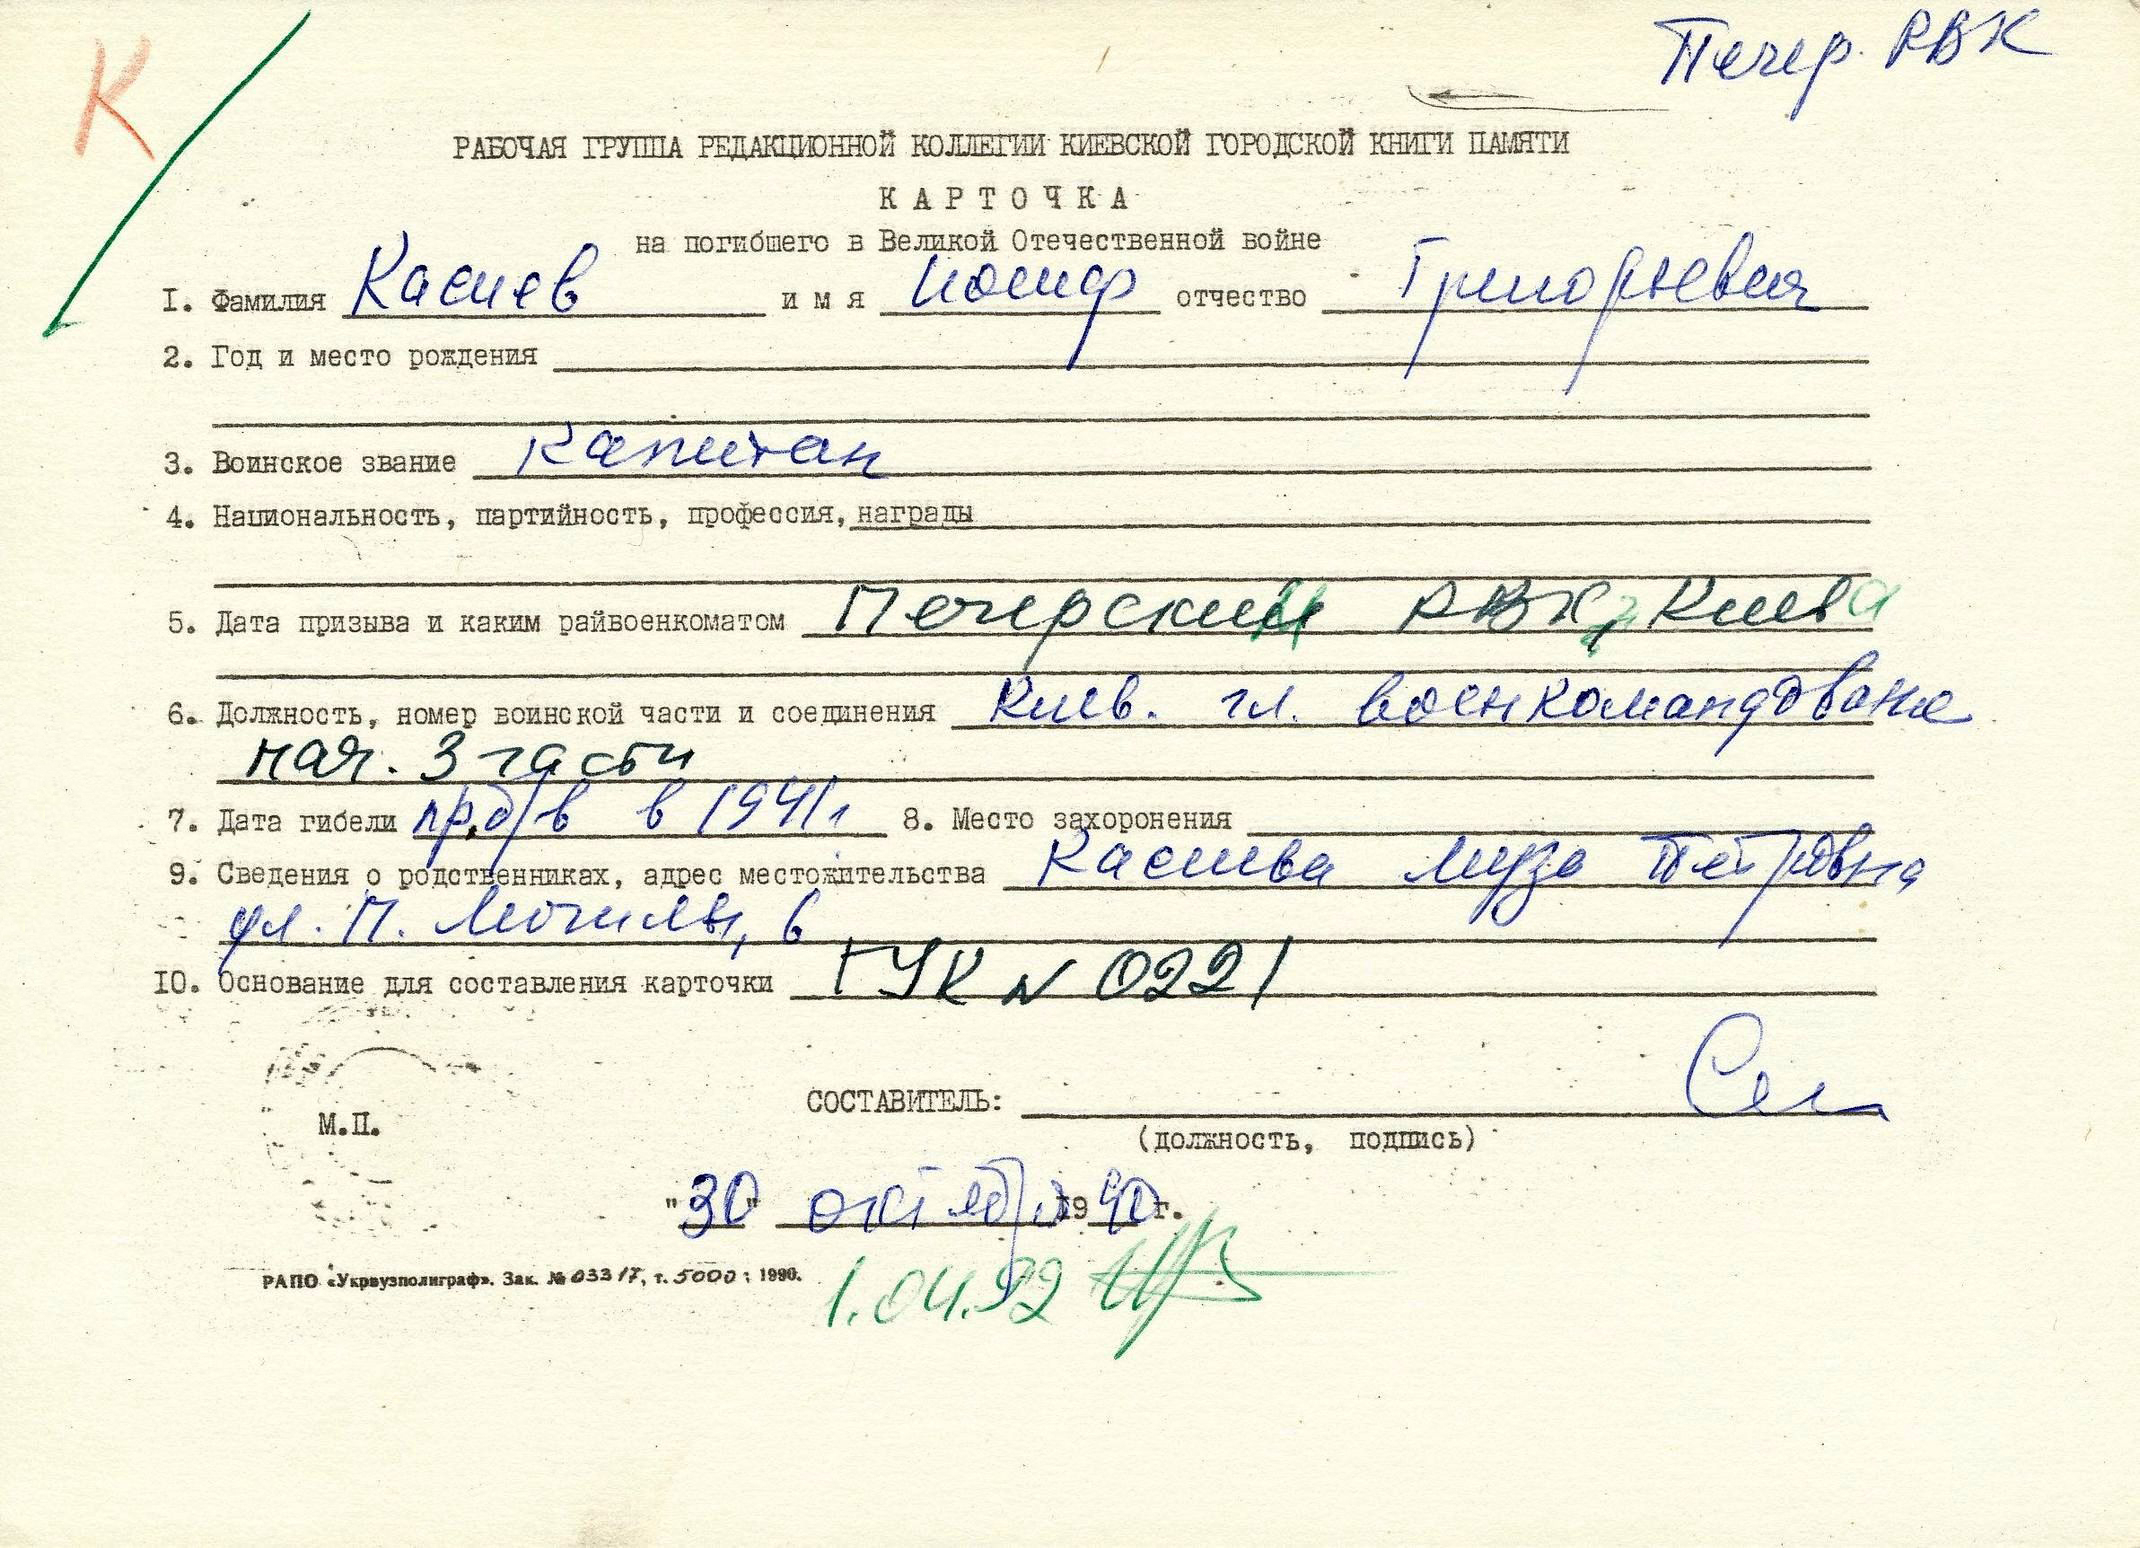 К
Печер. РВК
РАБОЧАЯ ГРУППА РЕДАКЦИОННОЙ КОЛЛЕГИИ КИЕВСКОЙ ГОРОДСКОЙ КНИГИ ПАМЯТИ
КАРТОЧКА
на погибшего в Великой Отечественной войне
I. Фамилия Касиев имя Иосиф отчество Григорьевич
2. Год и место рождения
3. Воинское звание Капитан
4. Национальность, партийность, профессия, награды
5. Дата призыва и каким райвоенкоматом Печерским РВК г. Киева
6. Должность, номер воинской части и соединения Киев. гл. военкомандование
нач. 3 части
7. Дата гибели пр. б/в в 1941г 8. Место захоронения
9. Сведения о родственниках, адрес местожительства Касиева Муза Петровна
ул. П. Могилы, 6
IO. Основание для составления карточки ГУК N 0221
СОСТАВИТЕЛЬ:
М.П.
(должность, подпись)
"30" октября 1990 г.
РАПО «Укрвузполиграф». Зак. № 03317, т. 5000 : 1990.
1.04.92